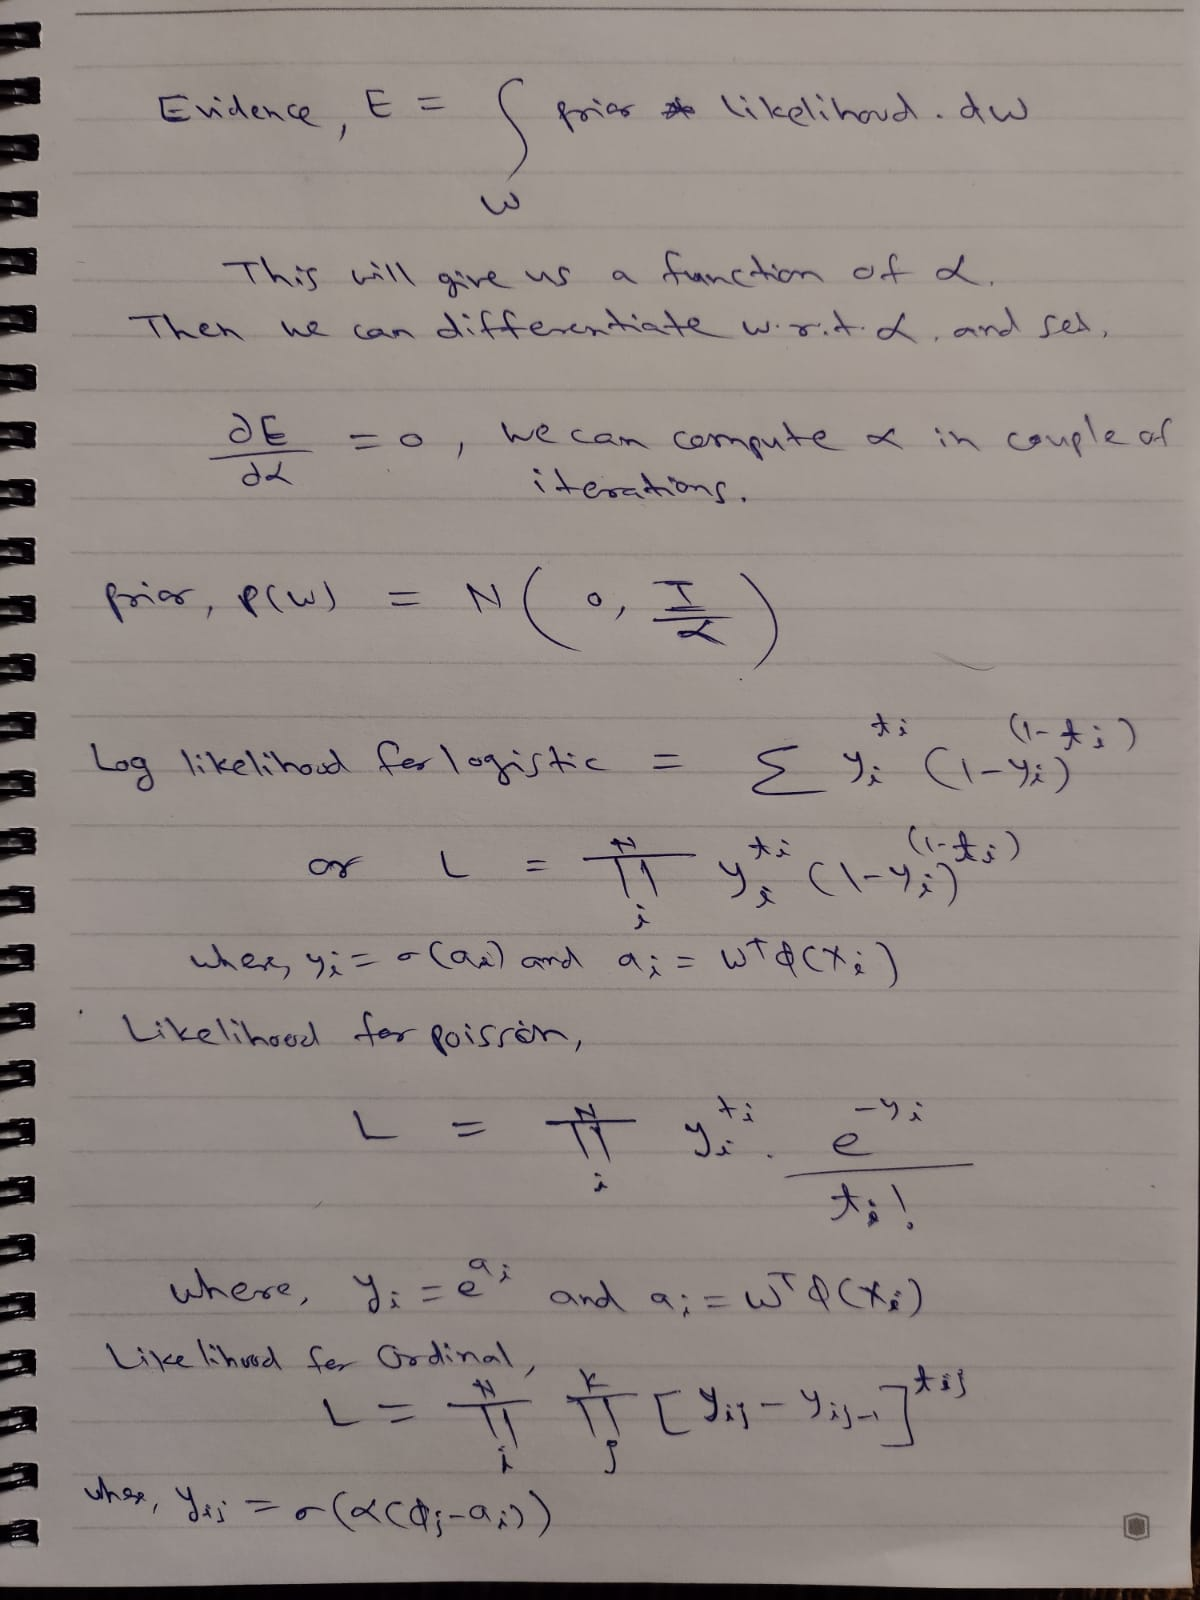 Evidence, E = ∫_w prior * likelihood . dw
This will give us a function of α.
Then we can differentiate w.r.t. α, and set,
∂E/∂α = 0, we can compute α in couple of
iterations.
prior, p(w) = N(0, I/α)
Log likelihood for logistic = Σ y_i^{t_i} (1-y_i)^{(1-t_i)}
or L = ∏_i^N y_i^{t_i} (1-y_i)^{(1-t_i)}
where, y_i = σ(a_i) and a_i = w^T φ(x_i)
Likelihood for poisson,
L = ∏_i^N y_i^{t_i} . e^{-y_i} / t_i!
where, y_i = e^{a_i} and a_i = w^T φ(x_i)
Likelihood for Ordinal,
L = ∏_i^N ∏_j^K [y_{ij} - y_{ij-1}]^{t_{ij}}
where, y_{ij} = σ(α(φ_j - a_i))